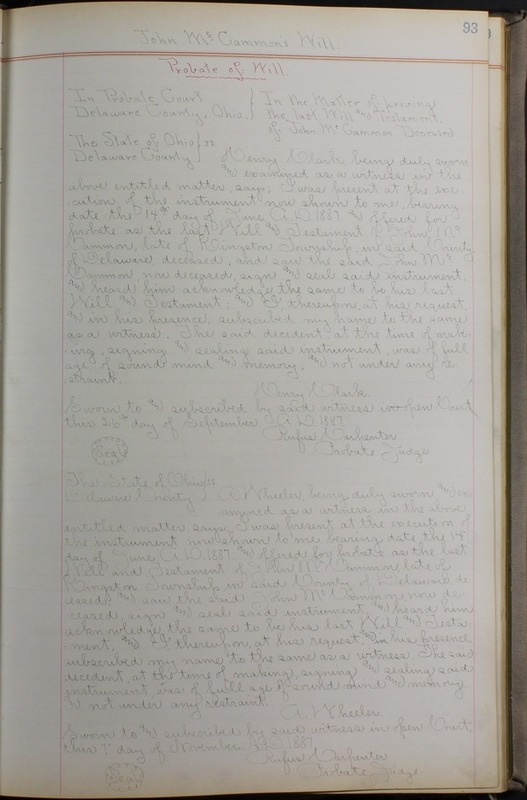 93
John Mc Cammon's Will.
Probate of Will.
In Probate Court
Delaware County, Ohio.
In the Matter of proving
the last Will and Testament
of John Mc Cammon Deceased
The State of Ohio } ss
Delaware County }
Henry Clark being duly sworn
and examined as a witness in the
above entitled matter, says; I was present at the exe-
cution of the instrument now shown to me, bearing
date the 14th day of June A.D. 1887 and offered for
probate as the last Will and Testament of John Mc
Cammon, late of Kingston Township, in said County
of Delaware deceased, and saw the said John Mc
Cammon, now deceased, sign and seal said instrument,
and heard him acknowledge the same to be his last
Will and Testament; and I, thereupon, at his request,
and in his presence, subscribed my name to the same
as a witness. The said decedent, at the time of mak-
ing, signing and sealing said instrument, was of full
age of sound mind and memory, and not under any re-
straint.
Henry Clark.
Sworn to and subscribed by said witness in open Court,
this 26th day of September A.D. 1887
Rufus Carpenter
Seal
Probate Judge
The State of Ohio } ss
Delaware County
A. Wheeler, being duly sworn and ex-
amined as a witness in the above
entitled matter says; I was present at the execution of
the instrument now shown to me, bearing date the 14th
day of June, A.D. 1887, and offered for probate as the last
Will and Testament of John Mc Cammon late of
Kingston Township, in said County of Delaware de-
ceased, and saw the said John Mc Cammon now de-
ceased, sign and seal said instrument, and heard him
acknowledge the same to be his last Will and Testa-
ment, and I thereupon, at his request and in his presence
subscribed my name to the same as a witness. The said
decedent, at the time of making, signing and sealing said
instrument was of full age of sound mind and memory
and not under any restraint.
A. Wheeler.
Sworn to and subscribed by said witness in open Court,
this day of November A.D. 1887
Rufus Carpenter
Seal
Probate Judge.